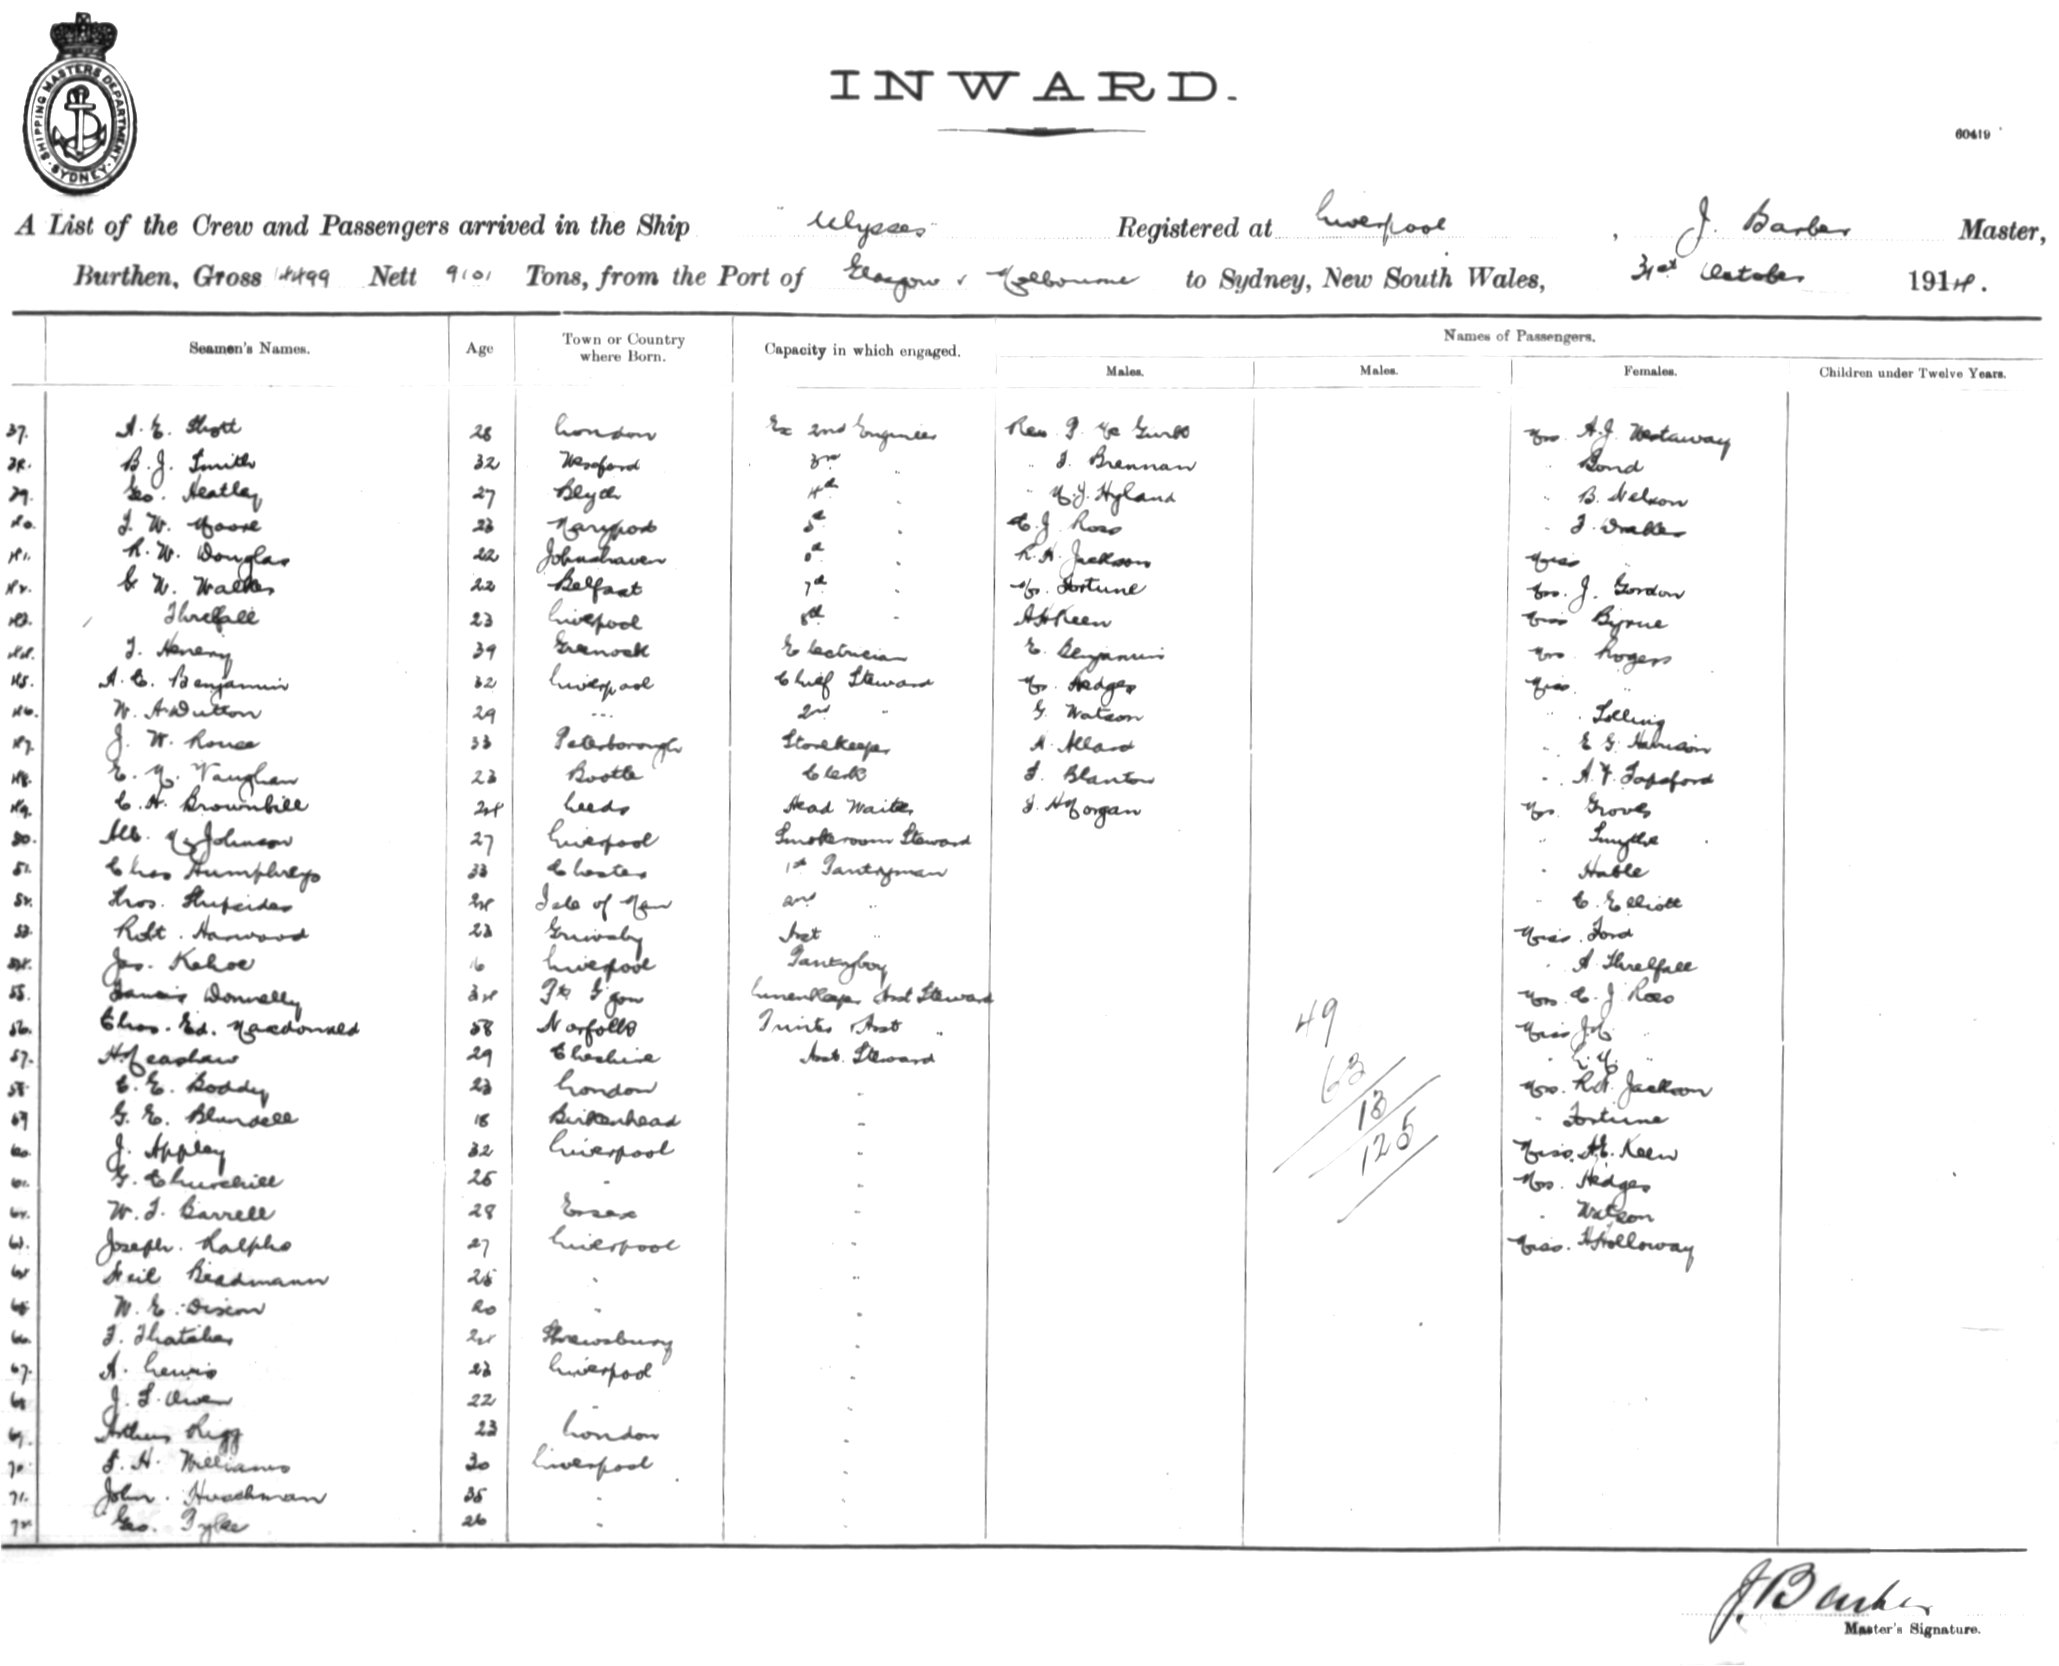 SHIPPING MASTERS DEPARTMENT. SYDNEY
INWARD.
60419
A List of the Crew and Passengers arrived in the Ship Ulysses Registered at Liverpool, J. Barber Master,
Burthen, Gross 14499 Nett 9101 Tons, from the Port of Glasgow & Melbourne to Sydney, New South Wales, 31st October 1914.
Seamen's Names. Age Town or Country where Born. Capacity in which engaged. Names of Passengers.
Males. Males. Females. Children under Twelve Years.
37. A. E. Shott 28 London Ex 2nd Engineer Rev. P. Mc Gurk Mrs. A.J. Westaway
38. B. J. Smith 32 Wexford 3rd " " J. Brennan " Bond
39. Geo. Heatley 27 Blyth 4th " " M.J. Hyland " B. Nelson
40. J. W. Moore 23 Maryport 5th " C. J. Ross "
41. R. W. Douglas 22 Johnshaven 6th " R. H. Jackson Miss "
42. G. W. Walker 22 Belfast 7th " Mr. Fortune Mrs. J. Gordon
43. Threlfall 23 Liverpool 8th " A H Keen Miss Byrne
44. J. Henery 39 Greenock Electrician E. Benjamin Mrs. Rogers
45. A. C. Benjamin 32 Liverpool Chief Steward Mr. Hedges Miss "
46. W. A Dutton 29 " 2nd " G. Watson "
47. J. W. Rouse 33 Peterborough Storekeeper A. Allard " E G. Harrison
48. E. M. Vaughan 23 Bootle Clerk J. Blanton " A. F. Topsford
49. C. H. Brownbill 24 Leeds Head Waiter J. H Morgan Mrs. Groves
50. Alb. M Johnson 27 Liverpool Smokeroom Steward " Smythe
51. Chas Humphreys 33 Chester 1st Pantryman " Hable
52. Thos. 24 Isle of Man 2nd " " C. Elliott
53. Robt. Harwood 23 Grimsby Asst " Miss. Ford
54. Jas. Kehoe 16 Liverpool Pantryboy " A. Threlfall
55. Francis Donnelly 34 Pt G'gow Linenkeeper Asst Steward Mrs. C. J. Ross
56. Chas. Ed. Macdonald 58 Norfolk Printer & Asst " Miss "
57. H Meashaw 29 Cheshire Asst. Steward " L. M. "
58. C. E. Boddy 23 London " Mrs. R.H. Jackson
59. G. E. Blundell 18 Birkenhead " " Fortune
60. J. Appley 32 Liverpool " Miss. A E. Keen
61. G. Churchill 25 " " Mrs. Hedges
62. W. J. Barrell 28 Essex " " Watson
63. Joseph. Ralphs 27 Liverpool " Miss. H Holloway
64. Neil Beadmann 25 " "
65. W. E. Dixon 20 " "
66. J. Thatcher 24 Shrewsbury "
67. A. Lewis 23 Liverpool "
68. J. S. Owen 22 " "
69. Arthur Rigg 23 London "
70. J. H. Williams 30 Liverpool "
71. John. Huschman 35 "
72. Geo. Pyke 26 "
49
63
13
125
J Barber
Master's Signature.